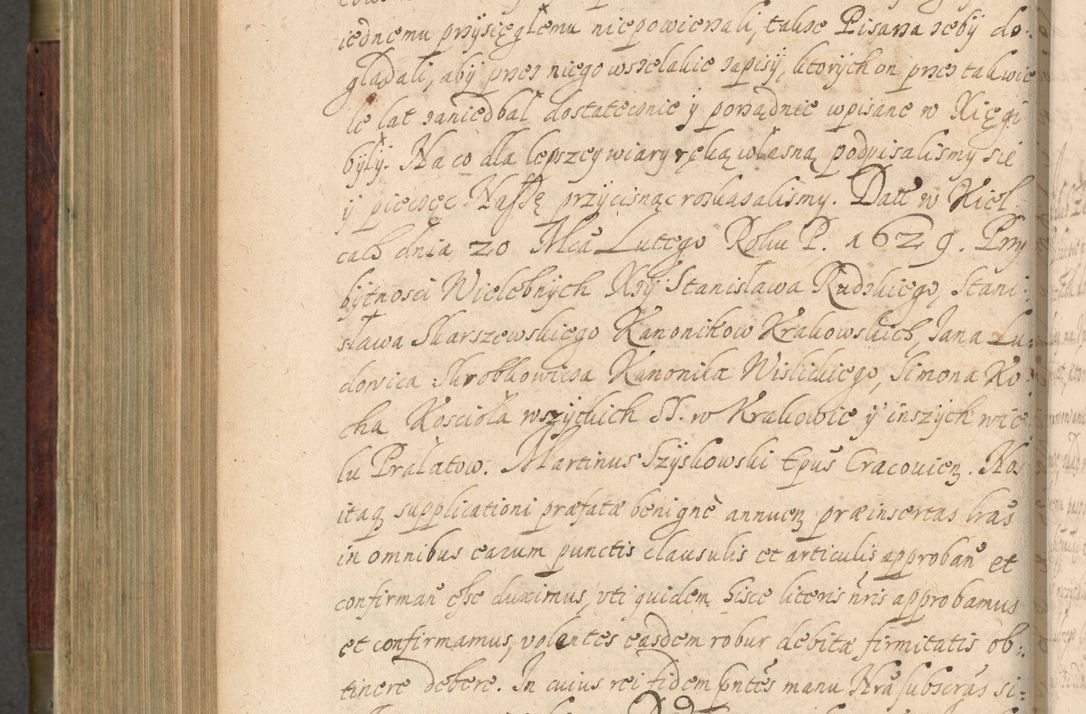 iednemu przysięgłemu niepowierzali, takze Pisarza zeby do-
glądali, aby przez niego wszelakie zapisy, ktorych on przez tak wie
le lat zaniedbał dostatecznie y porządnie wpisane w Xięgi
były. Na co dla lepszey wiary ręką własną podpisalismy się
y pieczęc Naszę przycisnąc roskazalismy. Datt w Kiel
cach dnia 20 Mca Lutego Roku P. 1629. Przy
bytnosci Wielebnych Xży Stanisława Rudzkiego, Stani-
sława Skarszewskiego Kanonikow Krakowskich, Jana Lu-
dovica Skrobkowicza Kanonika Wislickiego, Simona Ko-
cha Koscioła wszytkich SS. w Krakowie y inszych wie
lu Prałatow. Martinus Szyszkowski Epus Cracovien. Nos
itaq supplicationi præfatæ benignè annuen præinsertas lras
in omnibus earum punctis clausulis et articulis approban et
confirman esse duximus, uti quidem hisce literis nris approbamus
et confirmamus, volentes easdem robur debitæ firmitatis ob-
tinere debere. In cuius rei fidem pntes manu Nra subscras si-